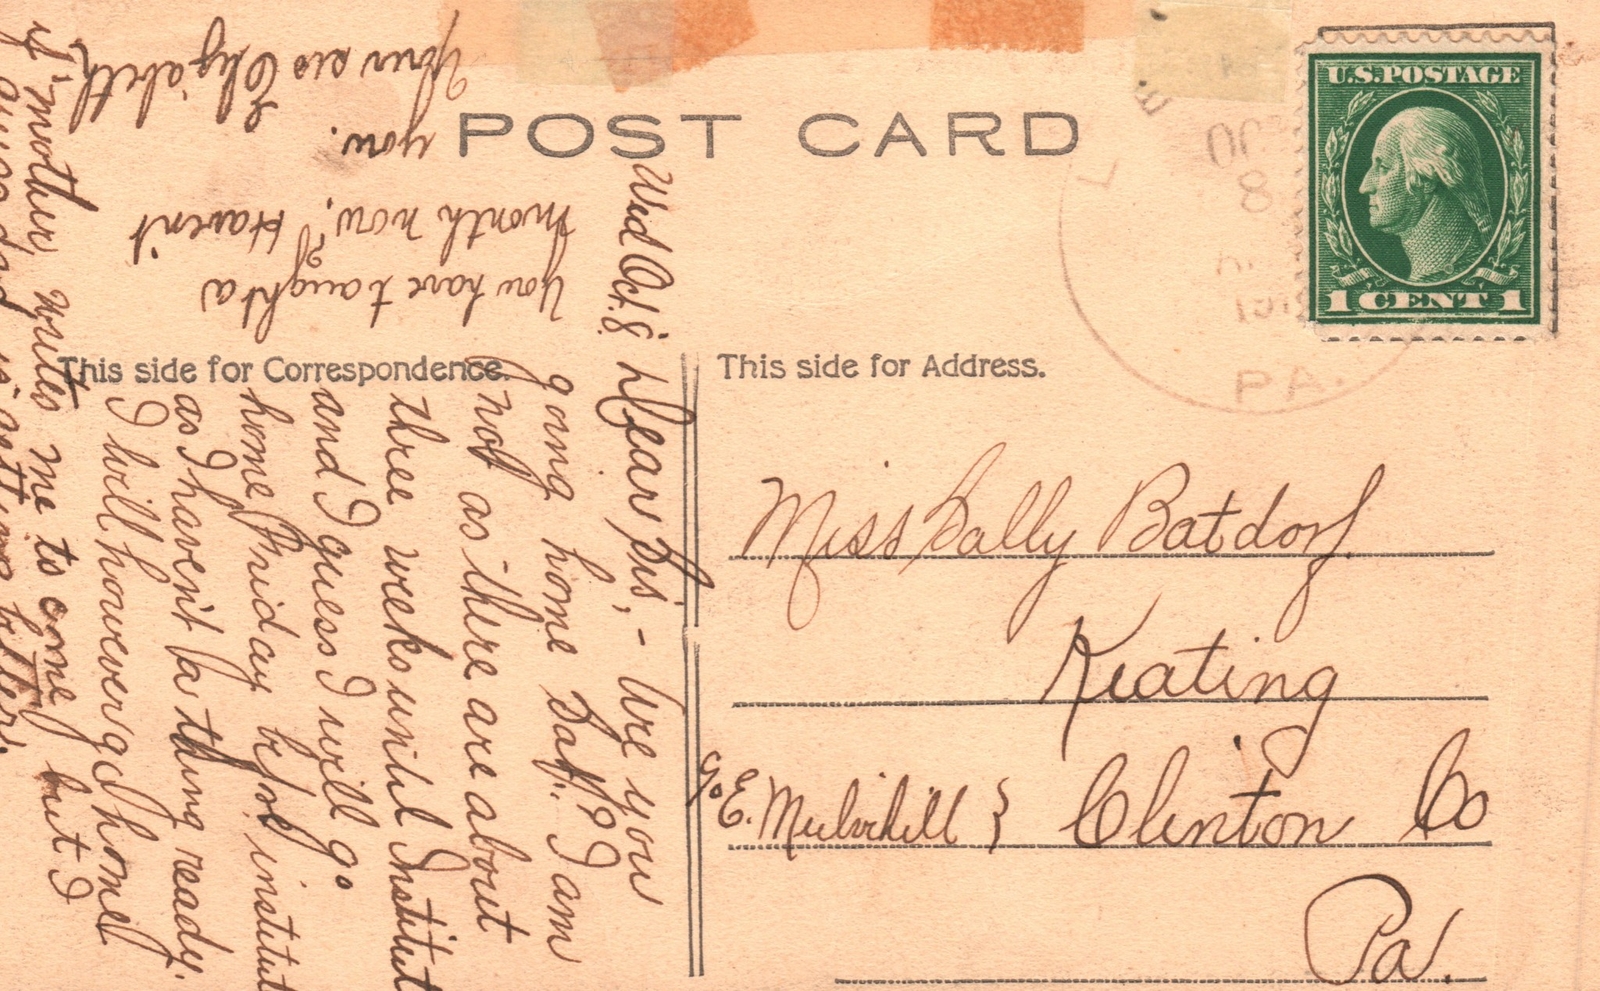 POST CARD
U.S. POSTAGE
1 CENT 1
8
PA.
This side for Correspondence.
This side for Address.
Wed Oct. 8.
Dear Sis, - Are you
going home Sat.? I am
not as there are about
three weeks until Institute
and I guess I will go
home Friday before institute
as I haven't a thing ready.
I will however go home
if mother writes me to come but I
guess dad is getting better.
You have taught a
month now, Haven't
you.
Your sis Elizabeth
Miss Sally Batdorf
Keating
Clinton Co
c/o E. Mulvihill
Pa.